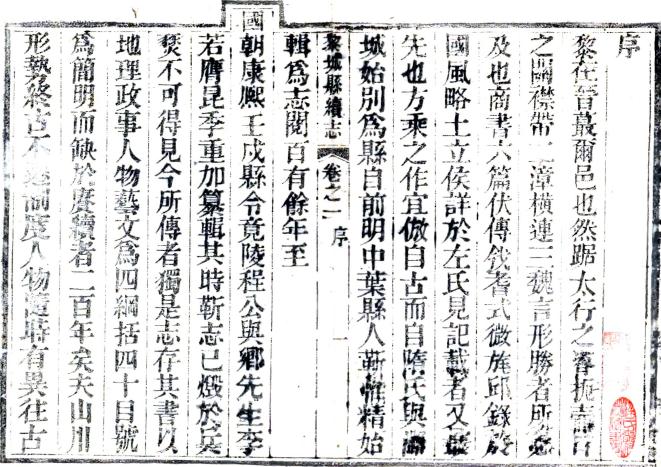 序
黎在晉蕞爾邑也然踞太行之脊扼壺口
之關襟帶二漳橫連三魏言形勝者所必
及也商書六篇伏傳戡耆式微旄邱錄於
國風略土立侯詳於左氏見記載者又最
先也方乘之作宜倣自古而自隋氏與潞
城始別爲縣自前明中葉縣人靳惟精始
黎城縣續志 卷之一 序
輯爲志閱百有餘年至
國朝康熙壬戌縣令竟陵程公與鄉先生李
若膺昆季重加纂輯其時靳志已燬於兵
燹不可得見今所傳者獨是志存其書以
地理政事人物藝文爲四綱括四十目號
爲簡明而缺於賡續者二百年矣夫山川
形勢終古不變制度人物隨時有異在古